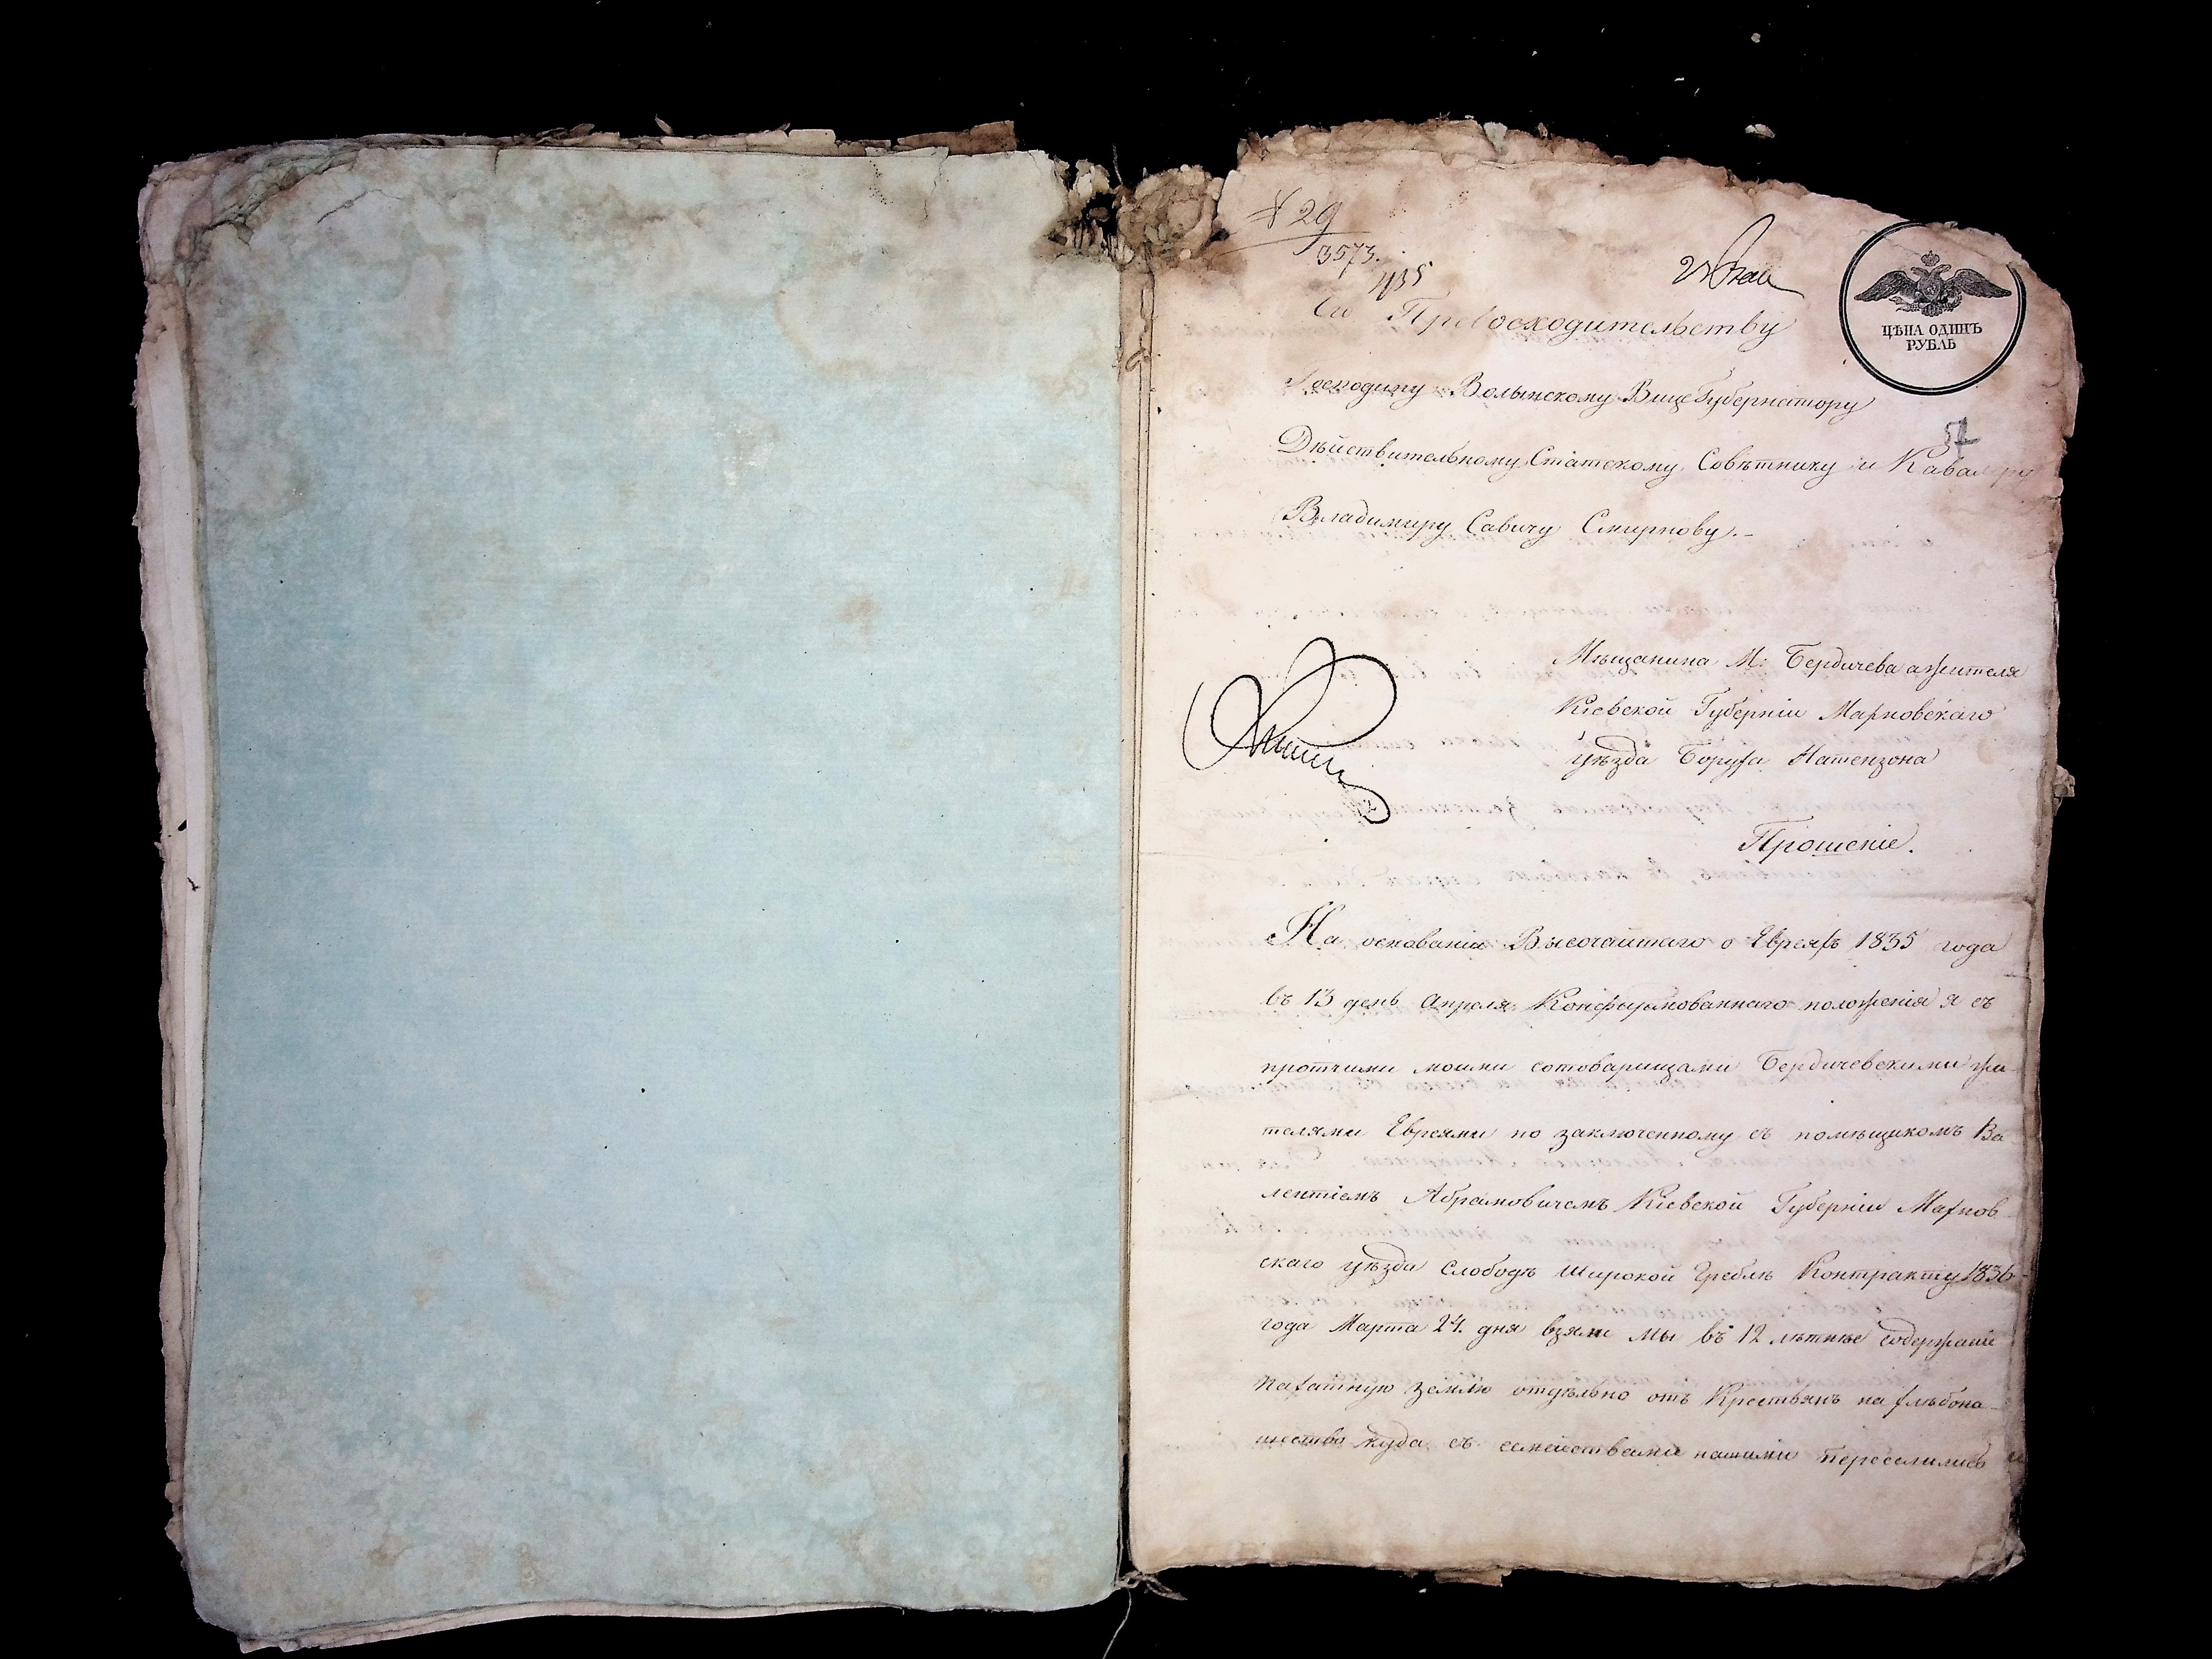 № 29
3573.
1135
ЦѢНА ОДИНЪ
РУБЛЬ
Его Превосходительству
Господину Волынскому Вице Губернатору
57
Дѣйствительному Статскому Совѣтнику и Кавалеру
Владимиру Савичу Смирнову.-
Мѣщанина М: Бердичева а жителя
Кіевской Губерніи Махновскаго
уѣзда Боруха Натензона
Прошеніе.
На основаніи Высочайшаго о Евреяхъ 1835 года
въ 13 день Апреля Конфирмованнаго положенія я съ
протчими моими сотоварищами Бердичевскими жи-
телями Евреями по заключенному съ помѣщикомъ Ва
лентіемъ Абрамовичемъ Кіевской Губерніи Махнов
скаго уѣзда Слободѣ Широкой Греблѣ Контракту 1836
года Марта 24. дня взяли мы въ 12 лѣтнѣе содержаніе
пахатную землю отдѣльно отъ Крестьянъ на хлѣбопа-
шество куда съ семействами нашими переселились и